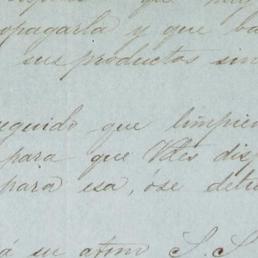 opagarla y que ba
sus productos sin
eguido que limpien
para que Vdes dis
para esa, ó se detu
á su atmo S. S.